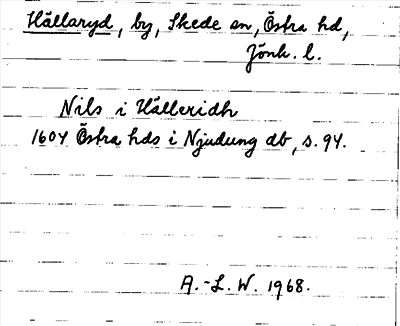 Hällaryd, by, Skede sn, Östra hd,
Jönk. l.
Nils i Hälleridh
1604 Östra hds i Njudung db, s. 94.
A.-L. W. 1968.